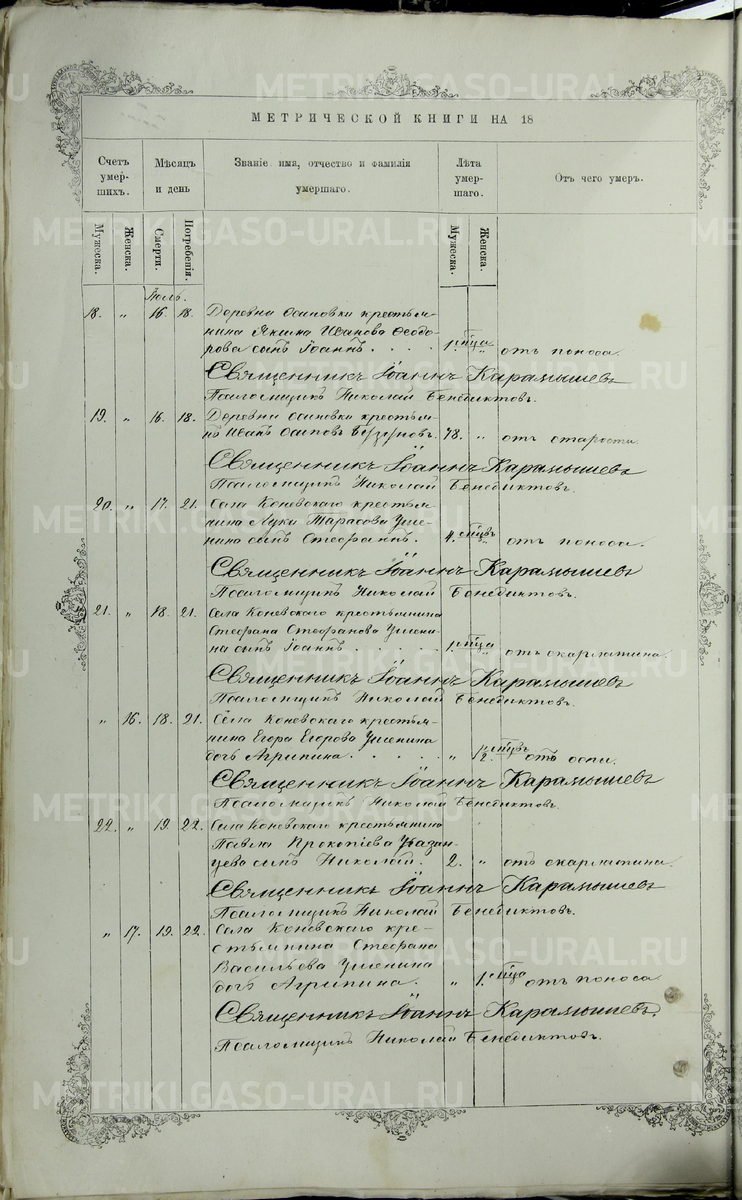 МЕТРИЧЕСКОЙ КНИГИ НА 18
Счетъ умерших.
Мѣсяцъ и день
Званіе имя, отчество и фамилія умершаго.
Лѣта умершаго.
Отъ чего умеръ.
Мужеска.
Женска.
Смерти.
Погребенія.
Мужеска.
Женска.
Іюль.
18. " 16. 18. Деревни Осиновки крестья-
нина Якима Иванова Ѳеодо-
рова сынъ Іоаннъ . . . . 1. мѣсца " отъ поноса.
Священникъ Іоаннъ Карамышевъ
Псаломщикъ Николай Бенедиктовъ.
19. " 16. 18. Деревни Осиновки крестья-
нъ Иванъ Осиповъ 78. " отъ старости.
Священникъ Іоаннъ Карамышевъ
Псаломщикъ Николай Бенедиктовъ.
20. " 17. 21. Села Коневскаго крестья-
нина Луки Тарасова Уше-
нина сынъ Стефанъ. 4. мѣсцвъ отъ поноса.
Священникъ Іоаннъ Карамышевъ
Псаломщикъ Николай Бенедиктовъ.
21. " 18. 21. Села Коневскаго крестьянина
Стефана Стефанова Ушени-
на сынъ Іоаннъ . . . . . 1. мѣсца " отъ скарлатина.
Священникъ Іоаннъ Карамышевъ
Псаломщикъ Николай Бенедиктовъ.
" 16. 18. 21. Села Коневскаго крестья-
нина Егора Егорова Ушенина
дочь Агрипина. . . . . . " мѣсцвъ отъ оспы.
Священникъ Іоаннъ Карамышевъ
Псаломщикъ Николай Бенедиктовъ.
22. " 19. 22. Села Коневскаго крестьянина
Павла Прокопіева Казан-
цева сынъ Николай. 2. " отъ скарлатина.
Священникъ Іоаннъ Карамышевъ
Псаломщикъ Николай Бенедиктовъ.
" 17. 19. 22. Села Коневскаго кре-
стьянина Стефана
Васильева Ушенина
дочь Агрипина. " 1. мѣсца отъ поноса
Священникъ Іоаннъ Карамышевъ.
Псаломщикъ Николай Бенедиктовъ.
METRIKI.GASO-URAL.RU